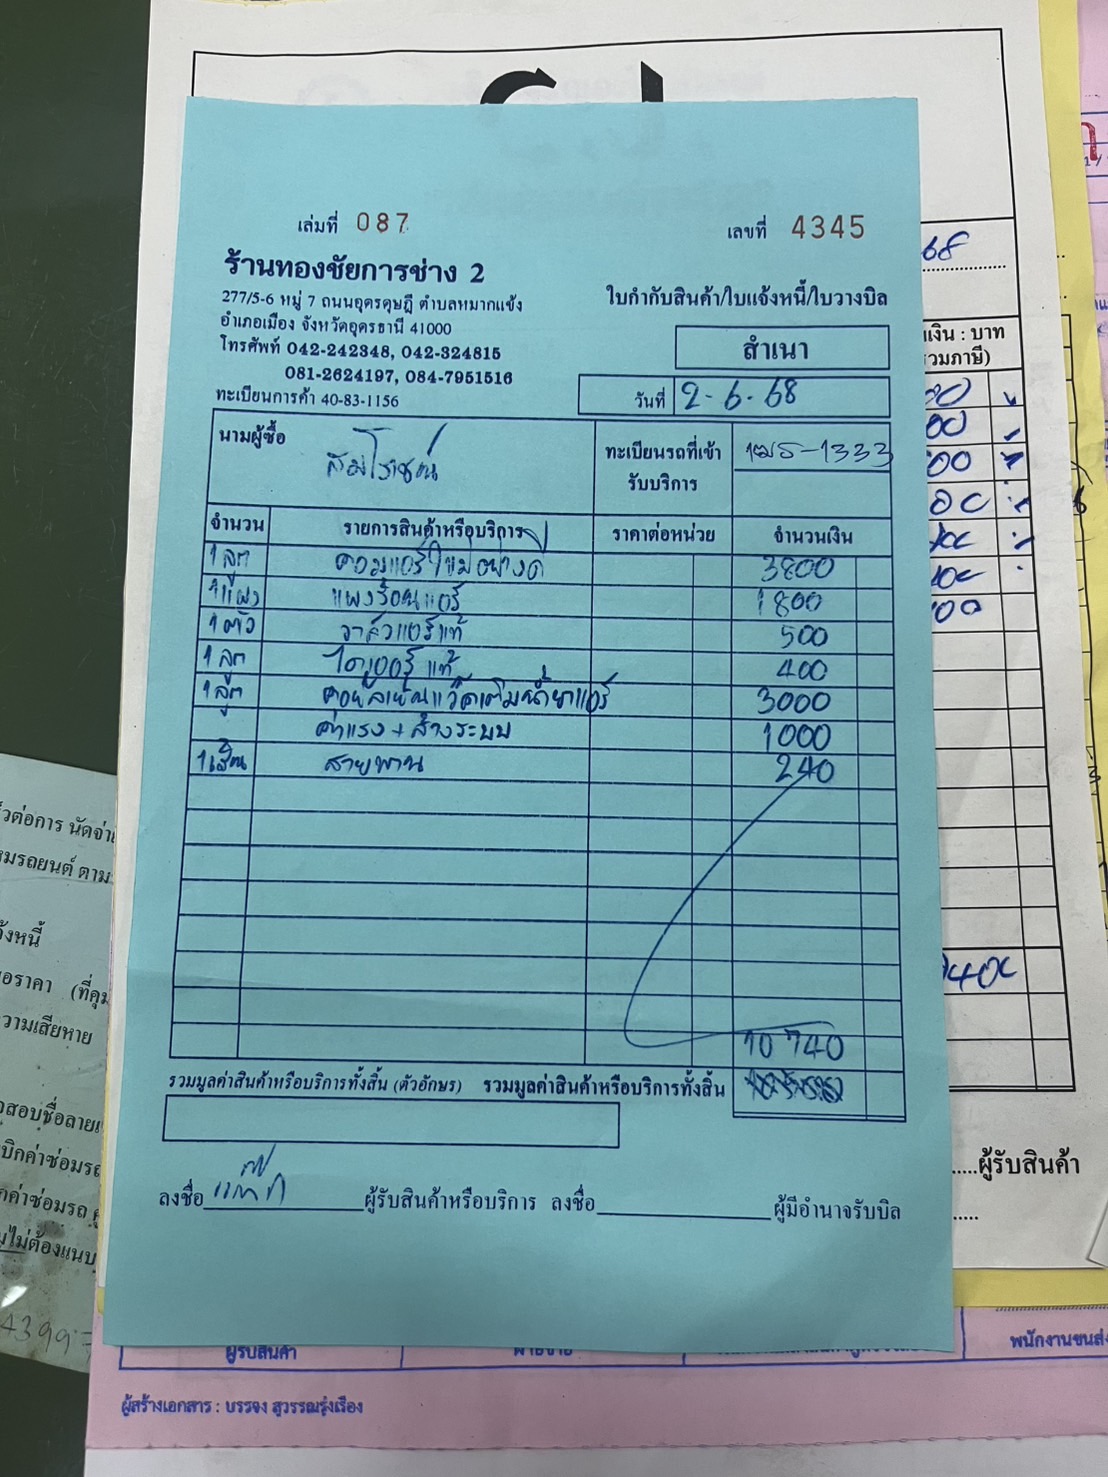 เล่มที่ 087
เลขที่ 4345
ร้านทองชัยการช่าง 2
277/5-6 หมู่ 7 ถนนอุดรดุษฎี ตำบลหมากแข้ง
อำเภอเมือง จังหวัดอุดรธานี 41000
โทรศัพท์ 042-242348, 042-324815
081-2624197, 084-7951516
ทะเบียนการค้า 40-83-1156
ใบกำกับสินค้า/ใบแจ้งหนี้/ใบวางบิล
สำเนา
วันที่ 2-6-68
นามผู้ซื้อ
ทะเบียนรถที่เข้ารับบริการ -1333
จำนวน รายการสินค้าหรือบริการ ราคาต่อหน่วย จำนวนเงิน
1 ลูก คอมแอร์ใหม่อย่างดี 3800
1 แผง แผงร้อนแอร์ 1800
1 ตัว วาล์วแอร์แท้ 500
1 ลูก ไดเออร์แท้ 400
1 ลูก 3000
ค่าแรง + ล้างระบบ 1000
1 เส้น สายพาน 240
10 740
รวมมูลค่าสินค้าหรือบริการทั้งสิ้น (ตัวอักษร) รวมมูลค่าสินค้าหรือบริการทั้งสิ้น
ลงชื่อ ผู้รับสินค้าหรือบริการ ลงชื่อ ผู้มีอำนาจรับบิล
68
เงิน : บาท
วมภาษี)
ผู้รับสินค้า
วต่อการ นัดจ่าย
มรถยนต์ ตาม
จ้งหนี้
อราคา (ที่คุม
วามเสียหาย
บิกค่าซ่อมรถ
กค่าซ่อมรถ
ไม่ต้องแนบ
4399
ผู้รับสินค้า
พนักงานขนส่ง
ผู้สร้างเอกสาร : บรรจง สุวรรณรุ่งเรือง